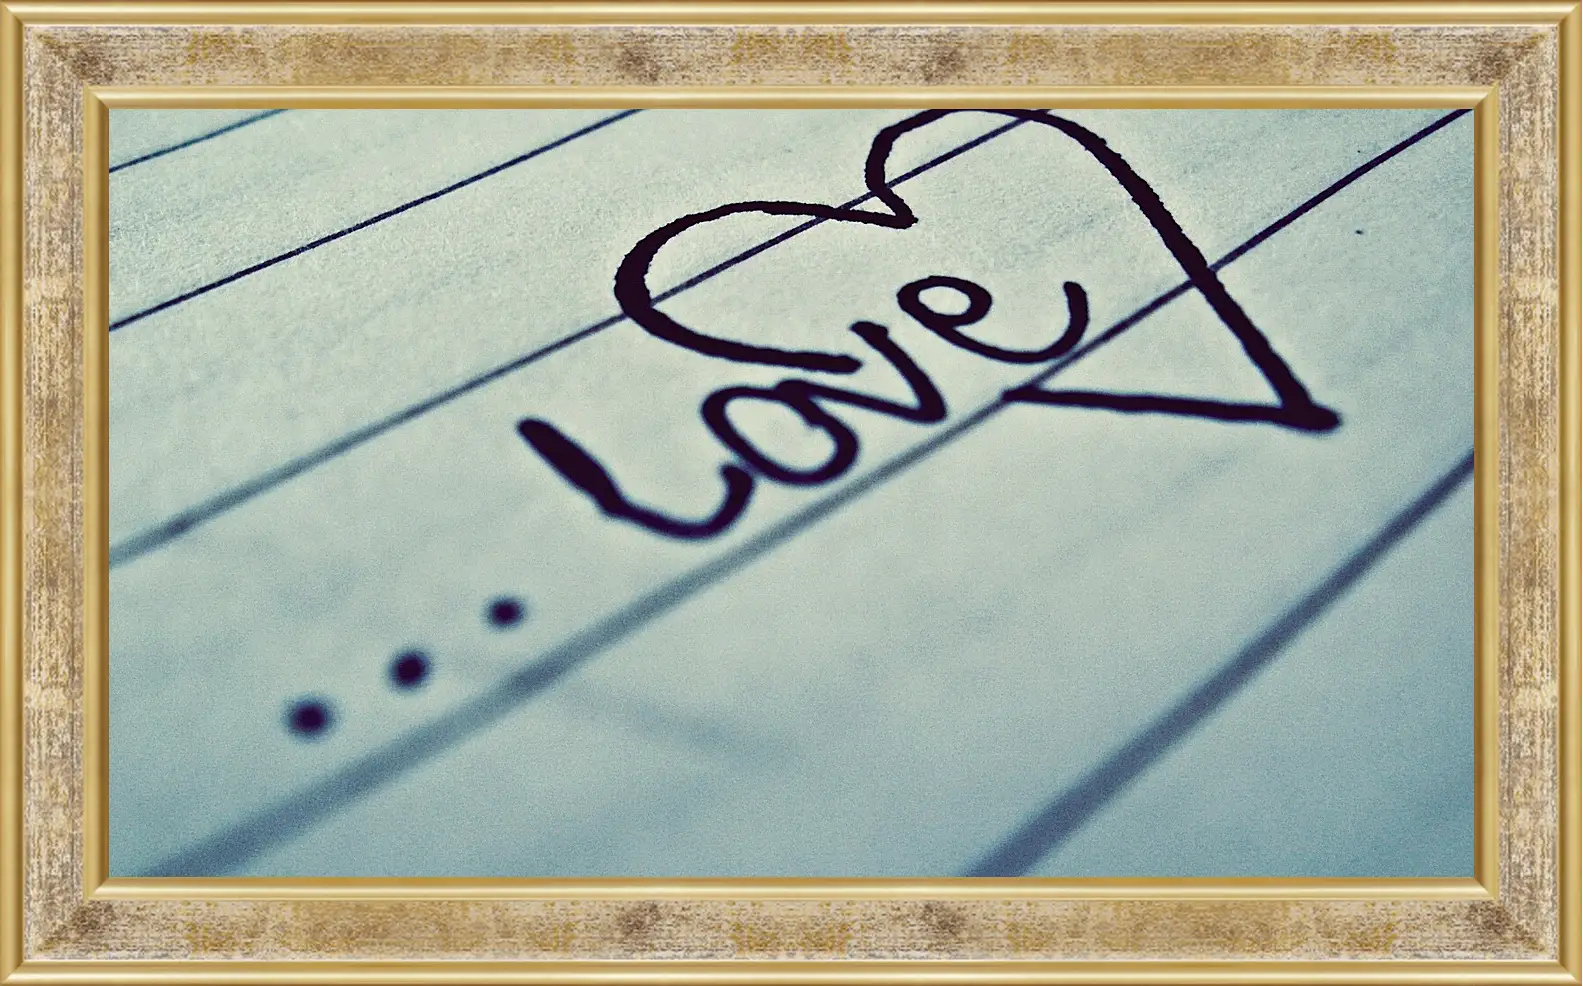 ... Love